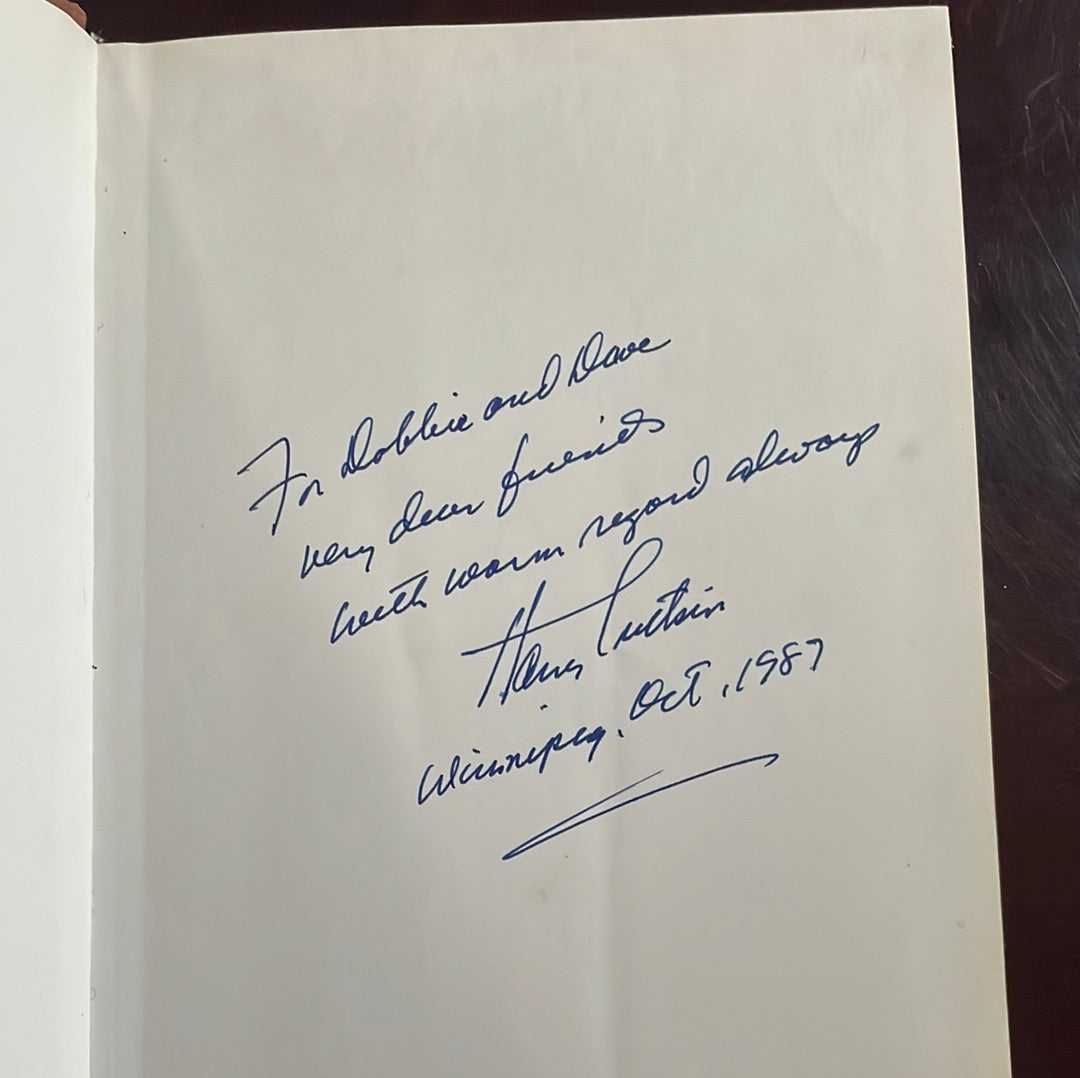 For Dobbie and Dave
very dear friends
with warm regard always
Harry
Winnipeg, Oct, 1987